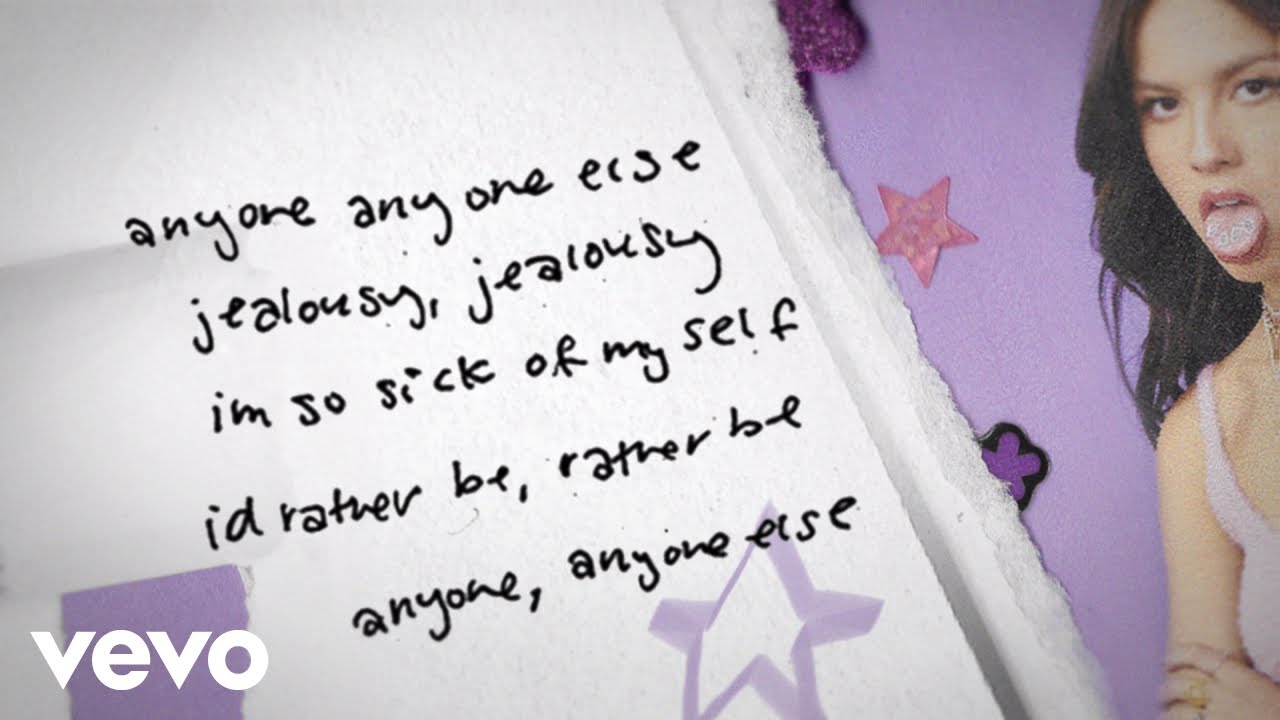 anyone anyone else
jealousy, jealousy
im so sick of my self
id rather be, rather be
anyone, anyone else
vevo